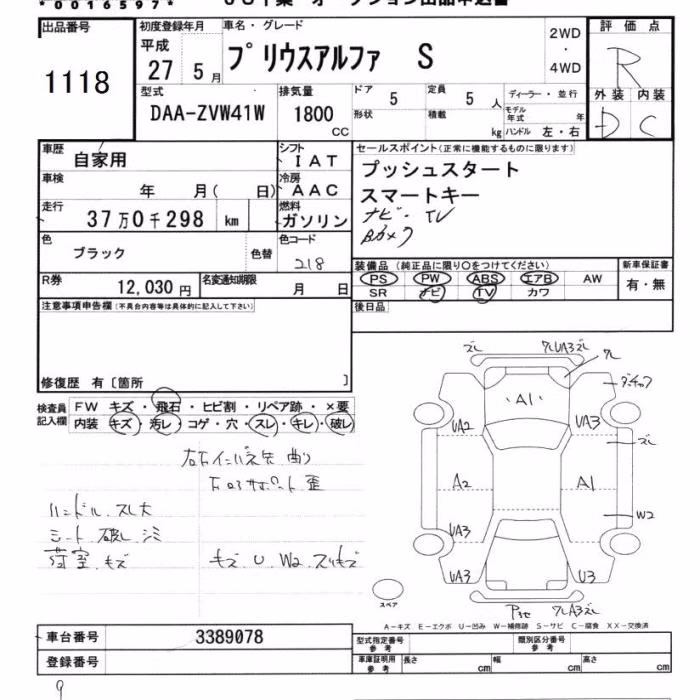 *0016597*
出品番号
1118
初度登録年月
平成
27 5 月
車名・グレード
プリウスアルファ S
2WD
・
4WD
評価点
R
外装 内装
D C
型式
DAA-ZVW41W
排気量
1800
CC
ドア
5
定員
5 人
形状
積載
kg
ディーラー・並行
モデル年式 年
ハンドル 左・右
車歴
自家用
シフト
IAT
セールスポイント(正常に機能するものに限ります)
プッシュスタート
スマートキー
ナビ・TV
Bカメラ
車検
年 月( 日)
冷房
AAC
走行
37万0千298 km
燃料
ガソリン
色
ブラック
色替
色コード
218
R券
12,030円
名変通知期限
月 日
装備品(純正品に限り○をつけてください)
PS PW ABS エアB AW
SR ナビ TV カワ
新車保証書
有・無
注意事項申告欄(不具合内容等は具体的に記入して下さい)
後日品
修復歴 有〔箇所 〕
検査員
記入欄
FW キズ・飛石・ヒビ割・リペア跡・×要
内装 キズ・汚レ・コゲ・穴・スレ・キレ・破レ
右右インパネ先曲り
右ロアサポート歪
ハンドル.スレ大
シート.破レ.シミ
荷室.キズ
キズ.U.W2.スリキズ
ズレ ワレUA3ズレ
ワレ
A1
UA2
UA3
ズレ
A2
A1
W2
UA3
UA3
U3
ワレA3ズレ
スペア
A－キズ E－エクボ U－凹み W－補修跡 S－サビ C－腐食 XX－交換済
車台番号
3389078
登録番号
型式指定番号
参考
類別区分番号
参考
車庫証明用
参考
長さ cm
幅 cm
高さ cm
9